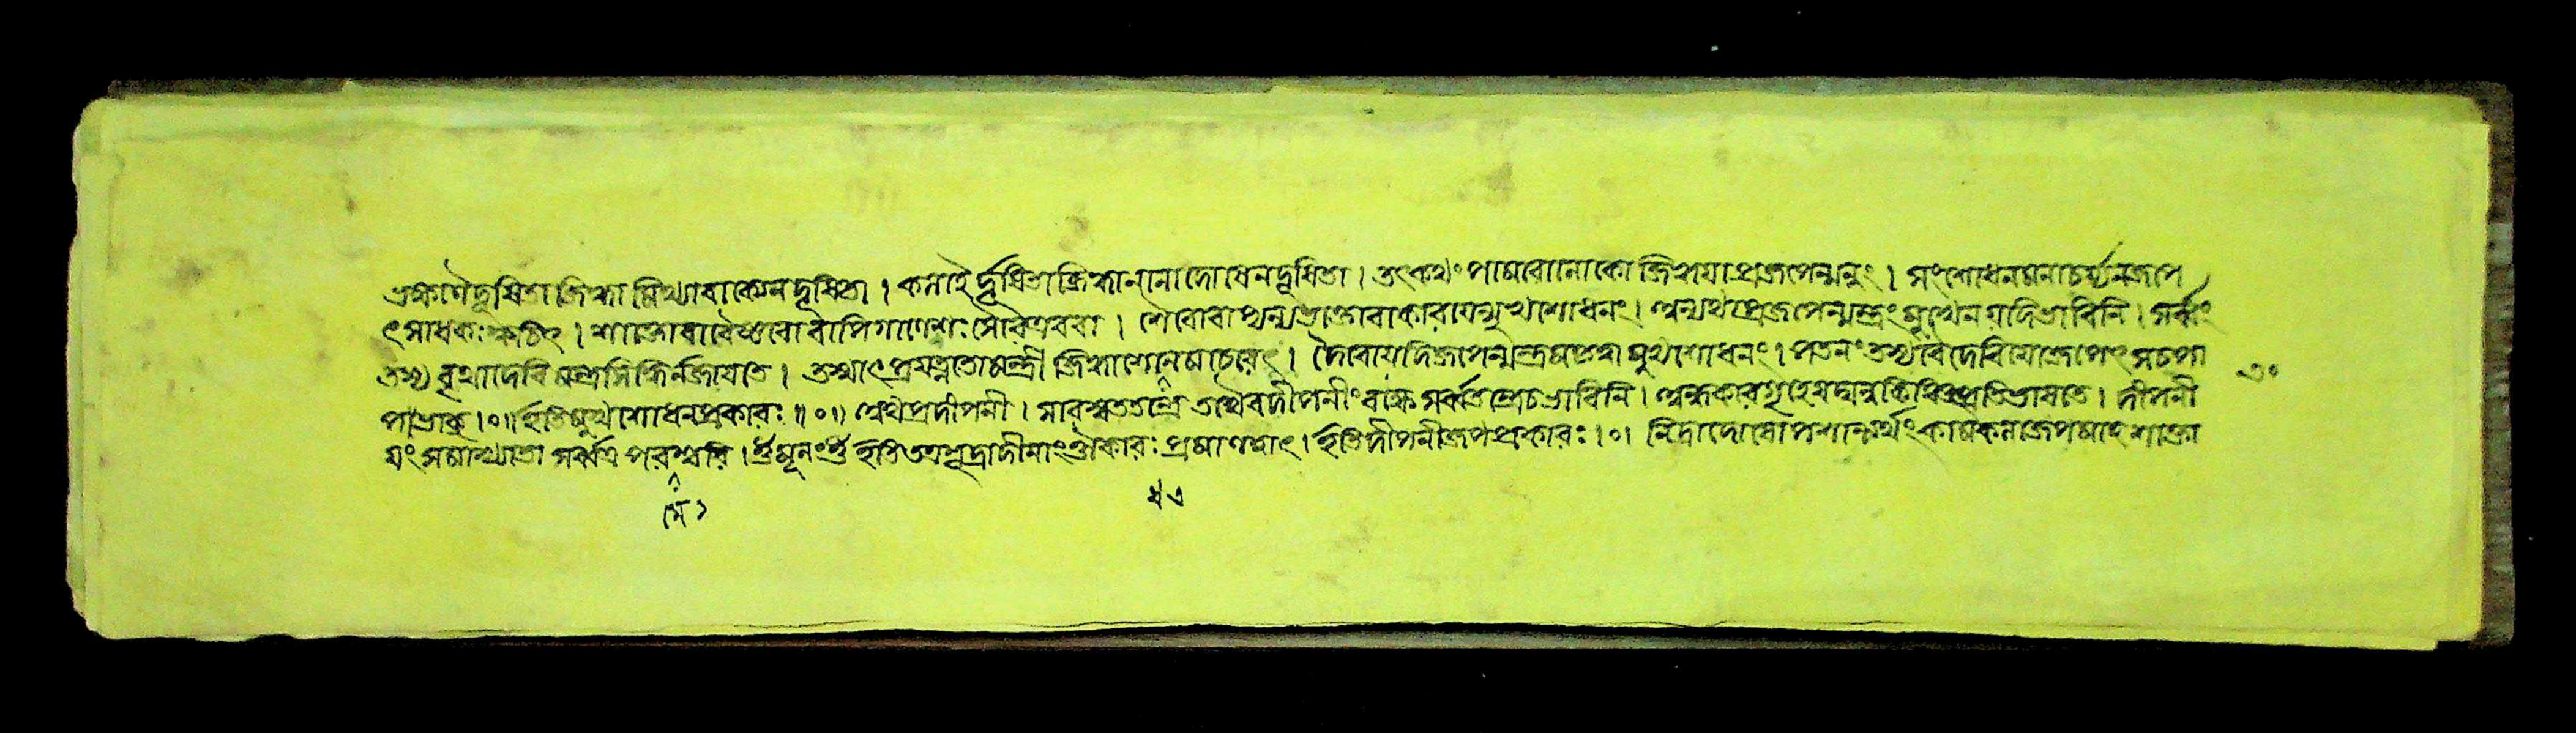 ভক্ষণৈর্দূষিতা জিহ্বা মিথ্যাবাক্যেন দূষিতা । কলহৈর্দ্দূষিতা জিহ্বা নানাদোষেন দূষিতা । তৎকথং পামরো লোকো জিহ্বয়া প্রজপেন্মনুং । সংশোধনমনাচর্য্য ন জপে
ৎ সাধকঃ ক্বচিৎ । শাক্তো বা বৈষ্ণবো বাপি গাণেশঃ সৌর এব বা । শৈবো বাপ্যন্যভক্তো বা কারয়েন্মুখশোধনং । অন্যথা প্রজপেন্মন্ত্রং মুখেন যদি ভাবিনি । সর্ব্বং
তস্য বৃথা দেবি মন্ত্রসিদ্ধির্ন জায়তে । তস্মাৎ প্রযত্নতো মন্ত্রী জিহ্বাশোধনমাচরেৎ । দৈবাৎ যদি জপেন্মন্ত্রমকৃত্বা মুখশোধনং । পতনং তস্য দেবি যো জপেৎ স চ পা
৩০
পভাক্ । ০ ॥ ইতি মুখশোধনপ্রকারঃ ॥ ০ ॥ অথ প্রদীপনী । সারস্বততন্ত্রে তথৈব দীপনীং বক্ষ্যে সর্ব্বতন্ত্রে চ ভাবিনি । অন্ধকারগৃহে যদ্বন্ন কিঞ্চিৎ প্রতিভাসতে । দীপনী
য়ং সমাখ্যাতা সর্ব্বত্র পরমেশ্বরি । ওঁ মূলং ওঁ ইতি শূদ্রাদীনাং ঔকারঃ প্রমাণমাৎ । ইতি দীপনীজপপ্রকারঃ । ০ । নিদ্রাদোষোপশান্ত্যর্থং কামকলাজপমাহ শাক্তা